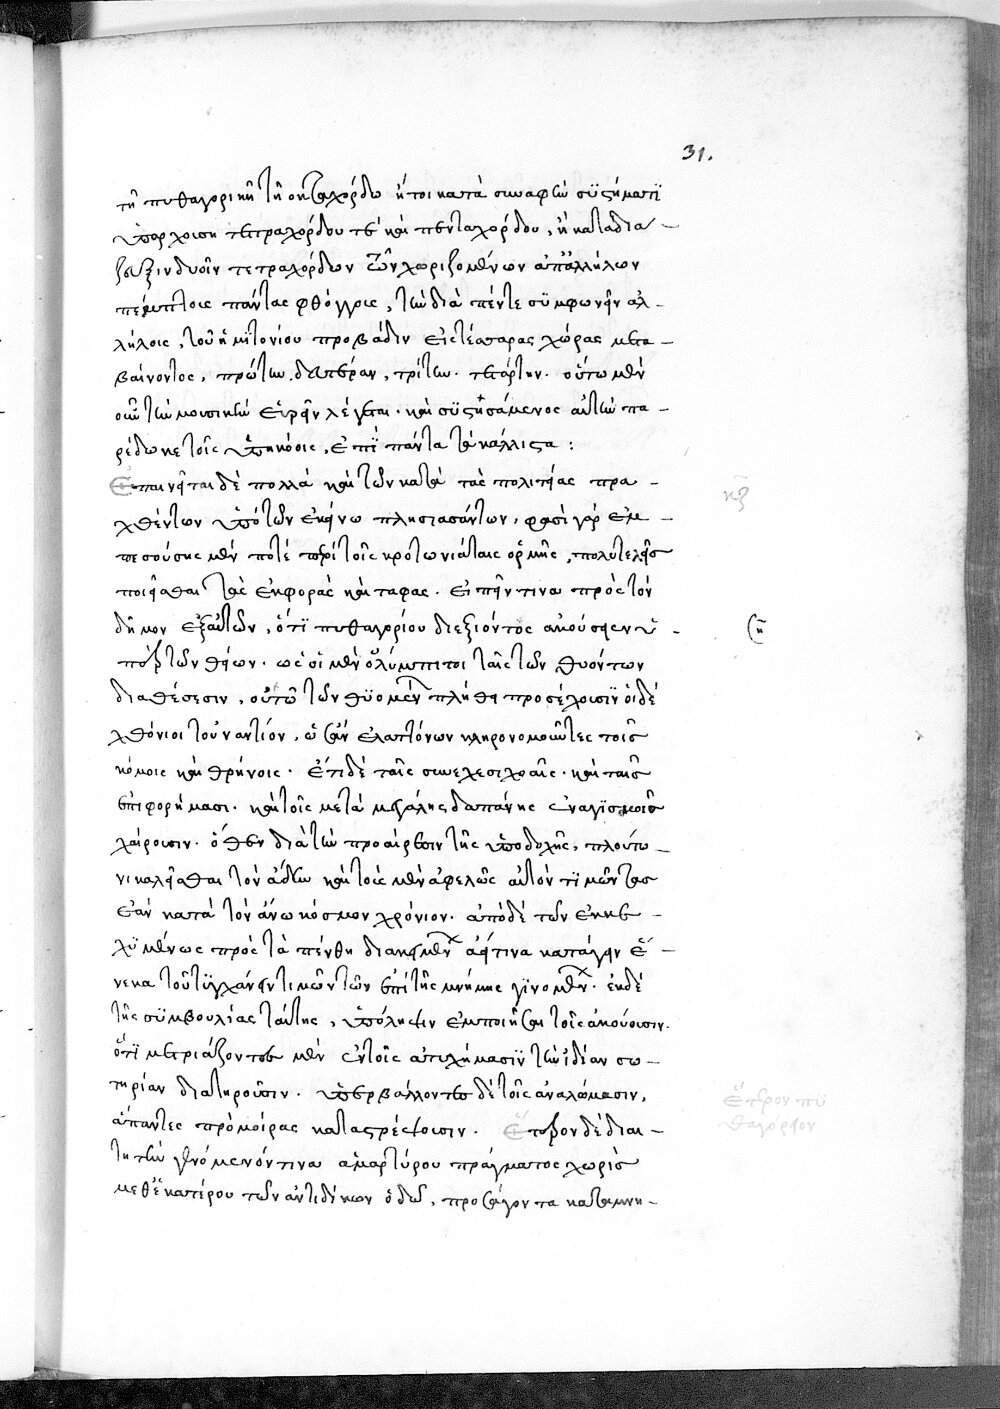 31.
τῆ πυθαγορικῆ τῆ ὀκταχόρδω ἤτοι κατὰ συναφὴν συστήματι
ὑπάρχοιση τετραχόρδου τὲ καὶ πενταχόρδου, ἢ κατὰ διά-
ζευξιν δυοῖν τετραχόρδων τῶν χωριζομένων ἀπαλλήλων
πέμπτοις πάντας φθόγγοις, τὴν διὰ πέντε συμφωνεῖν ἀλ-
λήλοις, τοῦ ἡμιτονίου προβάδιν εἰς τέσσαρας χώρας μετα-
βαίνοντος, πρώτην, δευτέραν, τρίτην. τετάρτην. οὕτω μὲν
οὖν τὴν μουσικὴν εὑρεῖν λέγεται. καὶ συστησάμενος αὐτὴν πα-
ρέδωκε τοῖς ὑπηκόοις, ἐπὶ πάντα τὰ κάλλιστα:
Ἐπαινεῖται δὲ πολλὰ καὶ τῶν κατὰ τὰς πολιτείας πρα-
χθέντων ὑπὸ τῶν ἐκείνω πλησιασάντων, φασὶ γὰρ ἐμ-
πεσούσης μέν ποτέ παρὰ τοῖς κροτωνιάταις ὁρμῆς, πολυτελεῖς
ποιεῖσθαι τὰς ἐκφορὰς καὶ ταφας. εἰπεῖν τινα πρὸς τὸν
δῆμον ἐξ αὐτῶν, ὅτι πυθαγορίου διεξιόντος ἀκούσειεν ὑ-
πὲρ τῶν θείων. ὡς οἱ μὲν ὀλύμπιοι ταῖς τῶν θυόντων
διαθέσεσιν, οὐ τῶ τῶν θυομένων πλήθει προσέχοισιν οἱ δὲ
χθόνιοι τοὐναντίον, ὡσὰν ἐλαττόνων κληρονομοῦντες τοῖς
κόμοις καὶ θρήνοις. ἔτι δὲ ταῖς συνεχέσι χοαῖς. καὶ ταῖς
ἐπιφορήμασι. καὶ τοῖς μετὰ μεγάλης δαπάνης ἐναγισμοῖς
χαίρουσιν. ὅθεν διὰ τὴν προαίρεσιν τῆς ὑποδοχῆς, πλούτω-
νι καλεῖσθαι τὸν ἅδην καὶ τοὺς μὲν ἀφελῶς αὐτὸν τιμῶντας
ἐᾶν κατὰ τὸν ἄνω κόσμον χρόνιον. ἀπὸ δὲ τῶν ἐκκε-
χυμένως πρὸς τὰ πένθη διακειμένων ἀεί τινα κατάγειν ἕ-
νεκα τοῦ τυγχάνειν τιμῶν τῶν ἐπὶ τῆς μνήμης γινομένων. ἐκ δὲ
τῆς συμβουλίας ταύτης, ὑπόληψιν ἐμποιῆσαι τοῖς ἀκούουσιν.
ὅτι μετριάζοντες μὲν ἐν τοῖς ἀτυχήμασιν τὴν ἰδίαν σω-
τηρίαν διατηροῦσιν. ὑπερβάλλοντες δὲ τοῖς ἀναλώμασιν,
ἅπαντες πρὸ μοίρας καταστρέψοισιν. Ἕτερον δὲ διαι-
τητὴν γενόμενόν τινα ἀμαρτύρου πράγματος χωρὶς
μεθ' ἑκατέρου τῶν ἀντιδίκων ὁδῶ, προσάγοντα κατὰ μνη-
κζ
(ῆ
ἕτερον πυ
θαγόρειον